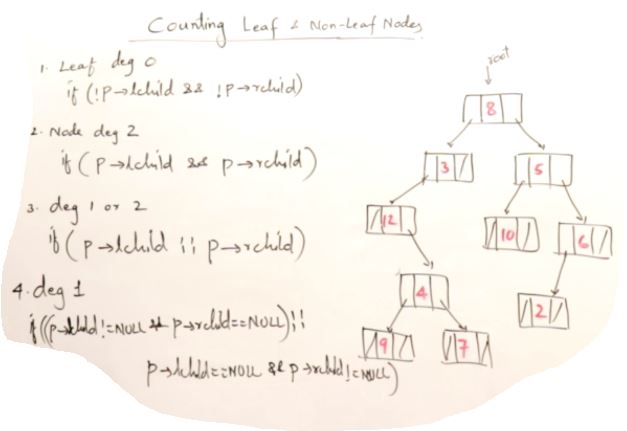 Counting Leaf & Non-Leaf Nodes
1. Leaf deg 0
if (!p→lchild && !p→rchild)
2. Node deg 2
if (p→lchild && p→rchild)
3. deg 1 or 2
if (p→lchild || p→rchild)
4. deg 1
if ((p→lchild!=NULL && p→rchild==NULL)||
p→lchild==NULL && p→rchild!=NULL)
root
8
3
5
12
10
6
4
2
9
7